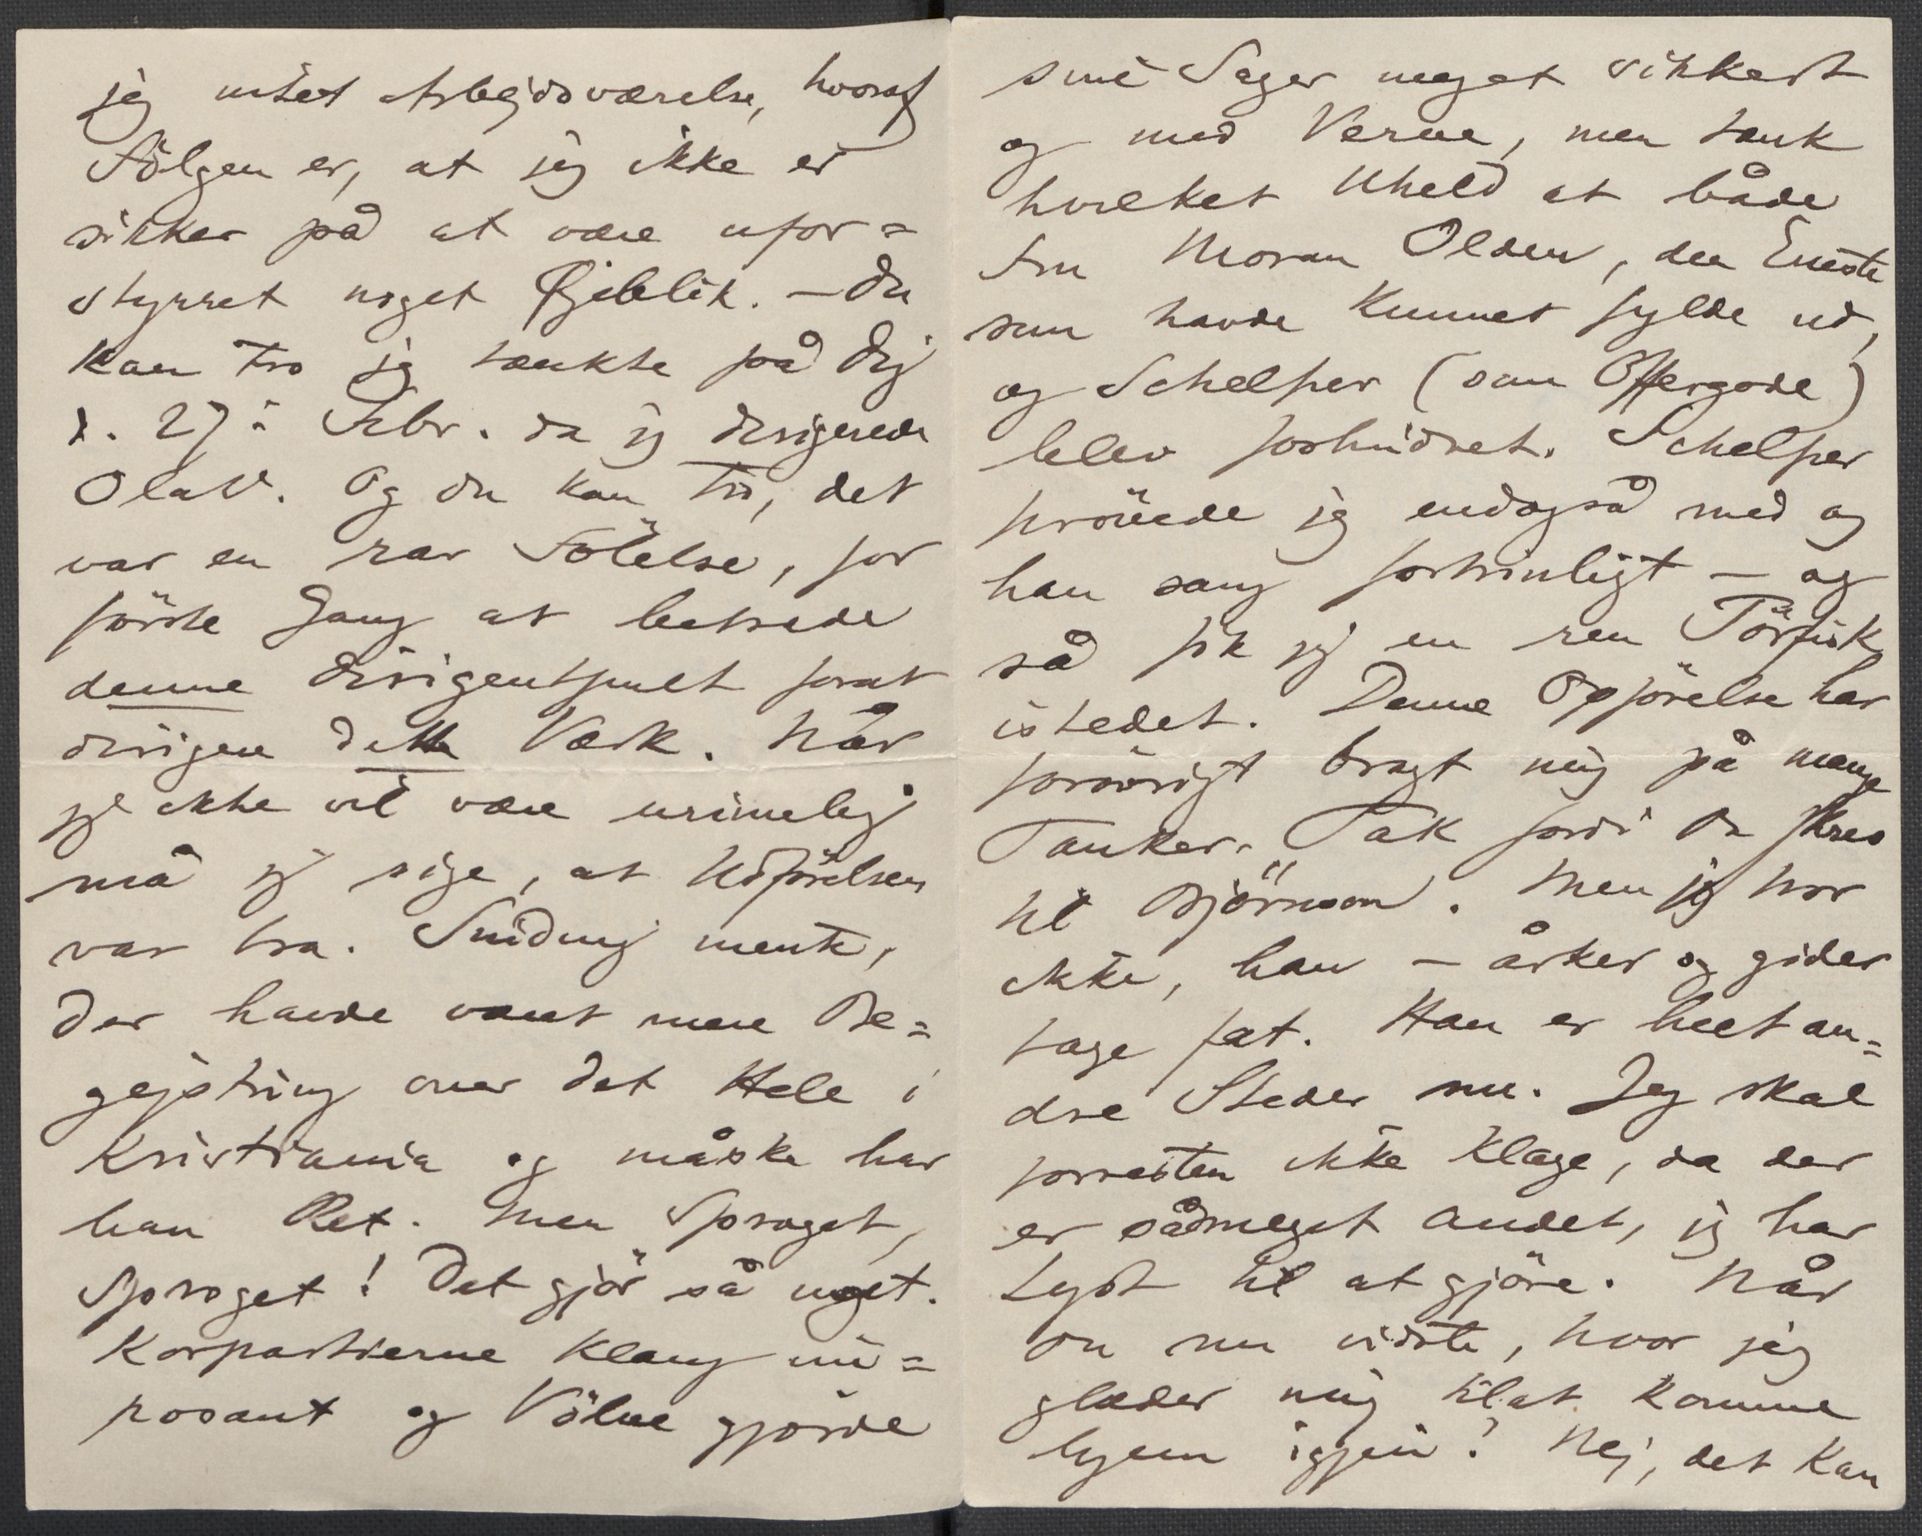 jeg intet Arbejdsværelse, hvoraf
Følgen er, at jeg ikke er
sikker på at være ufor=
styrret noget Øjeblik. – Du
kan tro jeg tænkte på Dig
d. 27: Febr. da jeg dirigerede
Olav. Og du kan tro, det
var en rar Følelse, for
første Gang at betræde
denne Dirigentpult forat
dirigere dette Værk. Når
jeg ikke vil være urimelig
må jeg sige, at Udførelsen
var bra. Sinding mente,
der havde været mere Be=
gejstring over det Hele i
Kristiania og måske har
han Ret. Men Sproget,
Sproget! Det gjør så meget.
Korpartierne klang im=
posant og Völve gjorde
sine Sager meget sikkert
og med Verve, men tænk
hvilket Uheld at både
Fru Moran Olden, den Eneste
som havde kunnet fylde ud,
og Schelper (som Offergode)
blev forhindret. Schelper
prövede jeg endogså med og
han sang fortrinligt – og
så fik jeg en ren Törfisk
istedet. Denne Opförelse har
forövrigt bragt mig på mange
Tanker. Tak fordi Du skrev
til Björnson. Men jeg tror
ikke, han – orker og gider
tage fat. Han er helt an=
dre Steder nu. Jeg skal
forresten ikke klage, da der
er såmeget andet, jeg har
Lyst til at gjöre. Når
du nu vidste, hvor jeg
glæder mig til at komme
hjem igjen! Nej, det kan